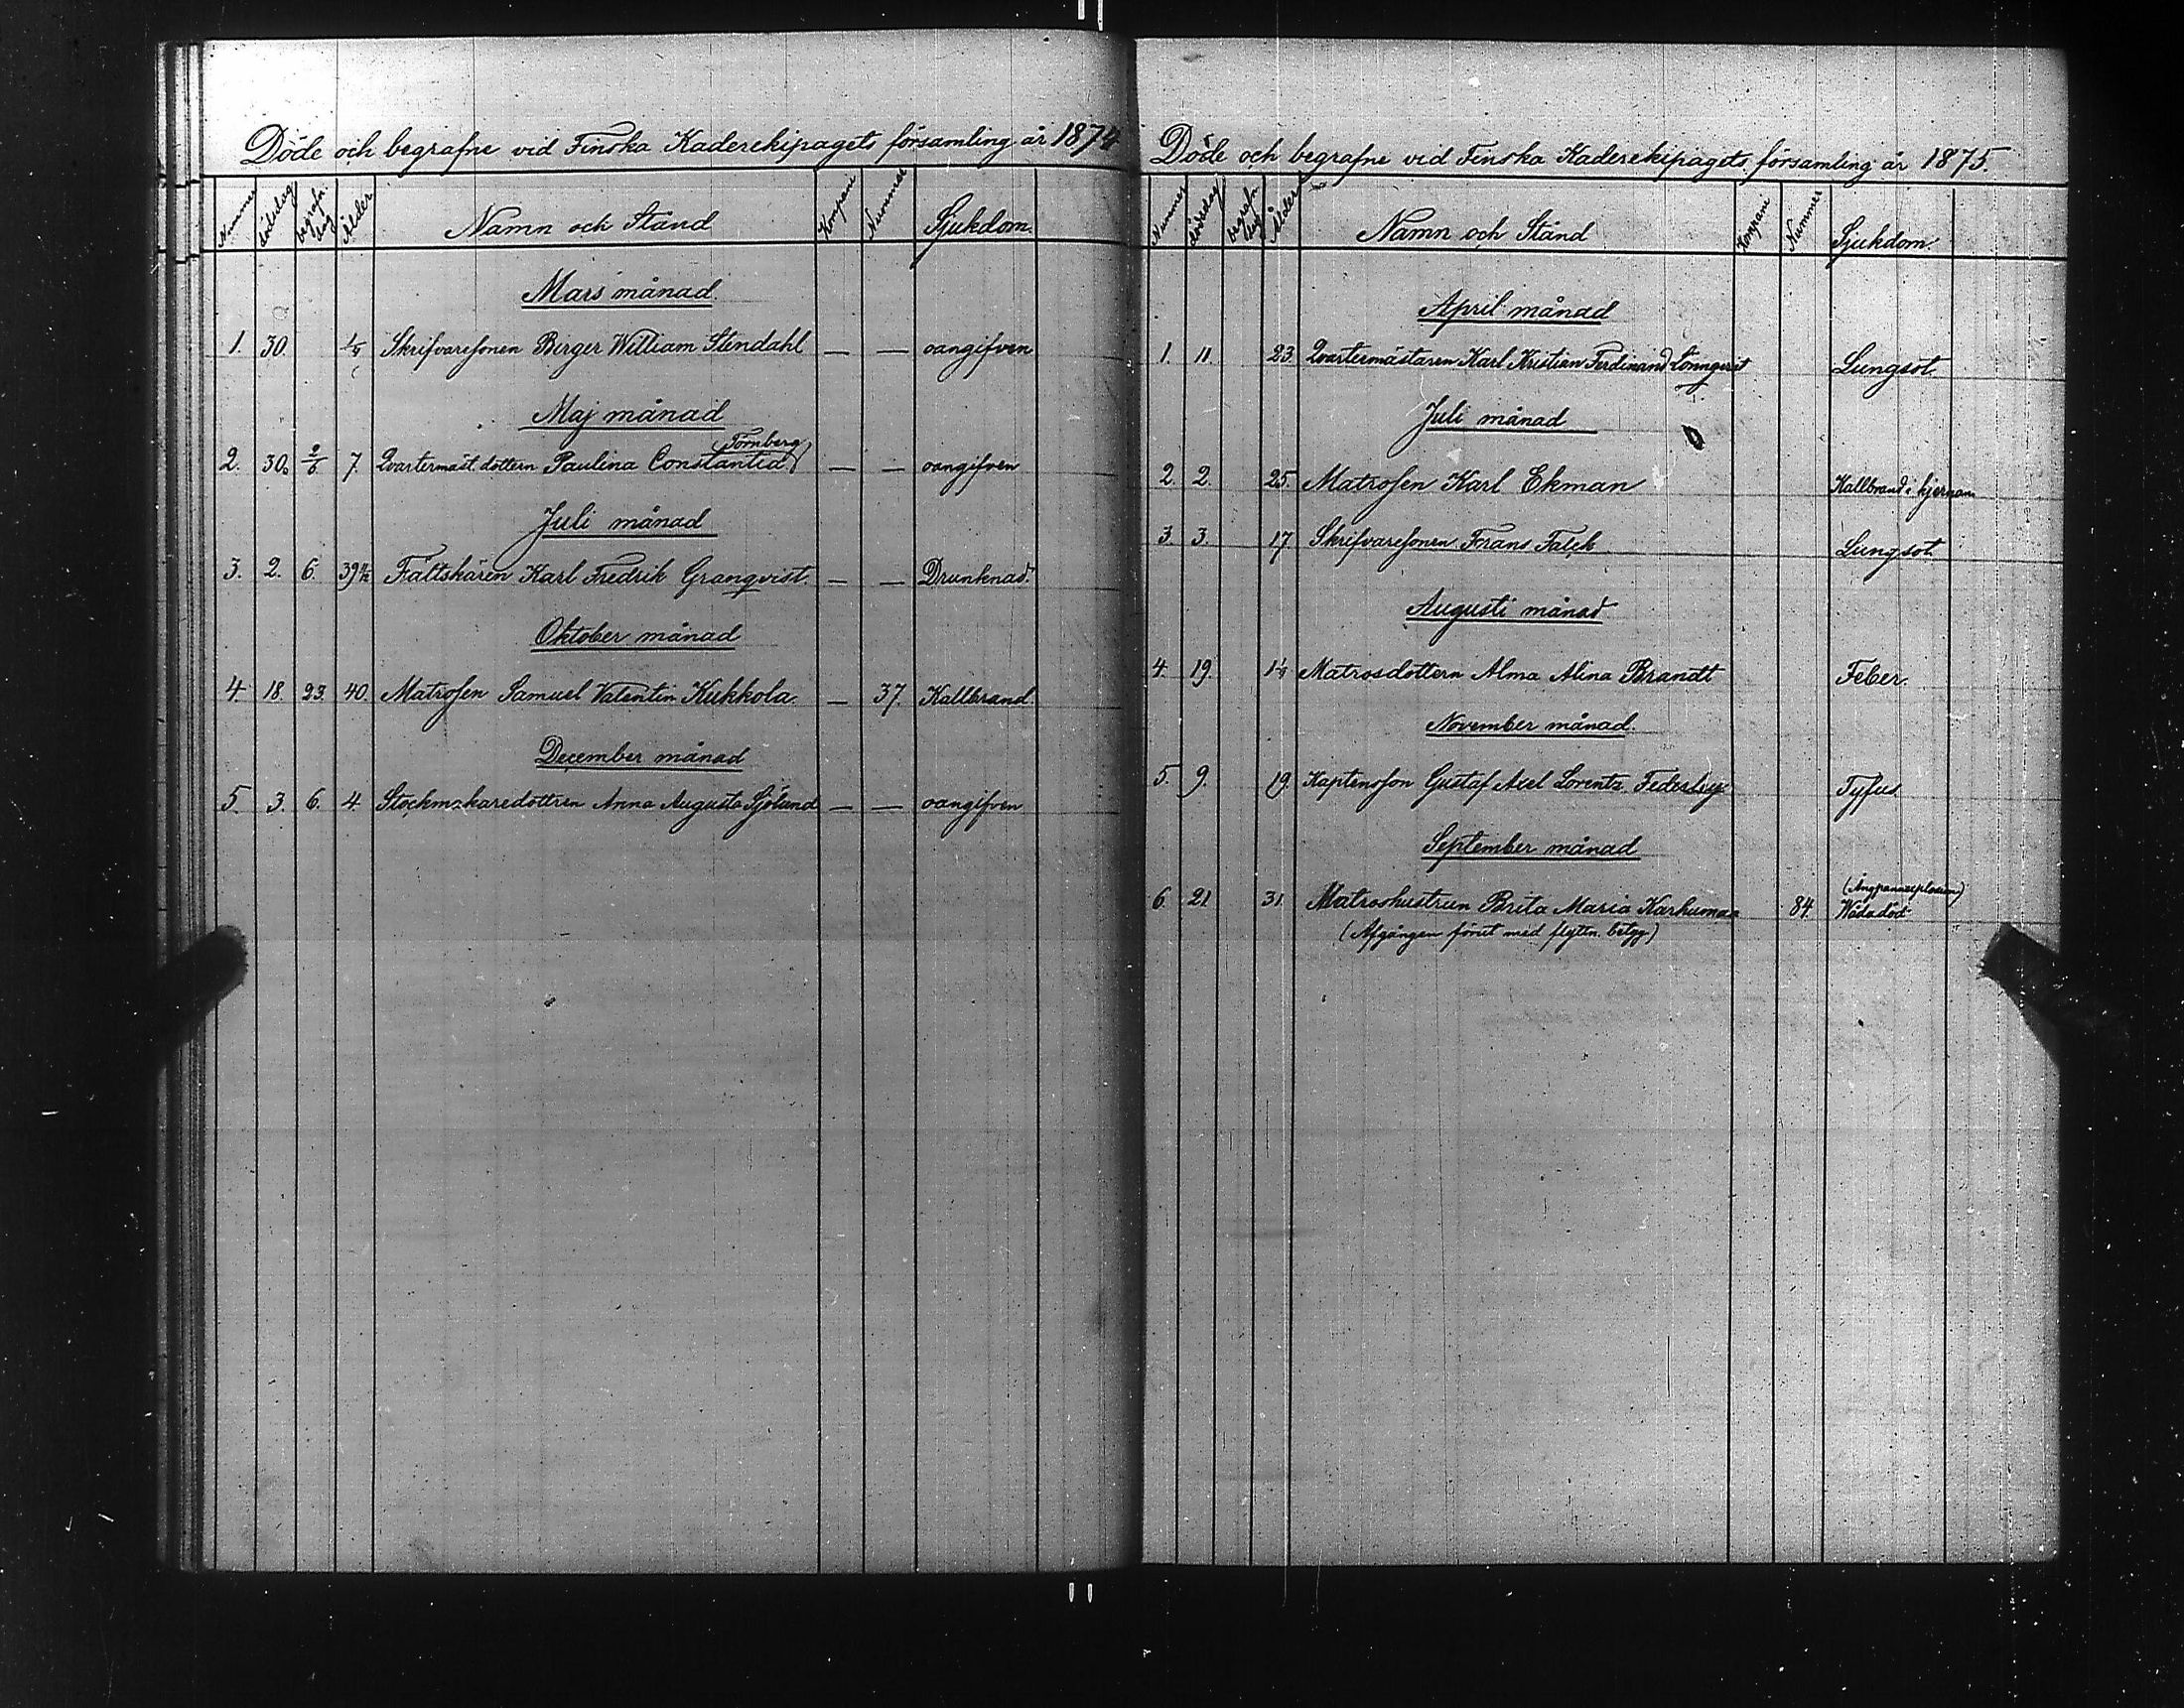 Döde och begrafne vid Finska Kaderekipagets församling år 1874
Nummer dödsdag begrafn. dag Ålder Namn och Stånd Kompani Nummer Sjukdom.
Mars månad.
1. 30. Skrifvaresonen Birger William Stendahl — — oangifven
Maj månad
2. 30. 2/6 7. Qvartermäst. dottern Paulina Constantia (Törnberg) — — oangifven
Juli månad
3. 2. 6. 39 Fältskären Karl Fredrik Granqvist. — — Drunknad.
Oktober månad
4. 18. 23. 40. Matrosen Samuel Valentin Kukkola. — 37. Kallbrand.
December månad
5. 3. 6. 4. Stockmakaredottren Anna Augusta Sjölund — — oangifven
Döde och begrafne vid Finska Kaderekipagets församling år 1875.
Nummer dödsdag begrafn. dag Ålder Namn och Stånd Kompani Nummer Sjukdom.
April månad
1. 11. 23. Qvartermästaren Karl Kristian Ferdinand Lönnqvist Lungsot.
Juli månad
2. 2. 25. Matrosen Karl Ekman Kallbrand i hjernan
3. 3. 17. Skrifvaresonen Frans Falck Lungsot.
Augusti månad
4. 19. Matrosdottern Alma Alina Brandt Feber.
November månad.
5. 9. 19. Kaptensson Gustaf Axel Lorentz Federley Tyfus
September månad
6 21 31. Matroshustrun Brita Maria Karhumaa 84. (Ångpanneexplosion) Wådadöd
(Afgången förut med flyttn. betyg)